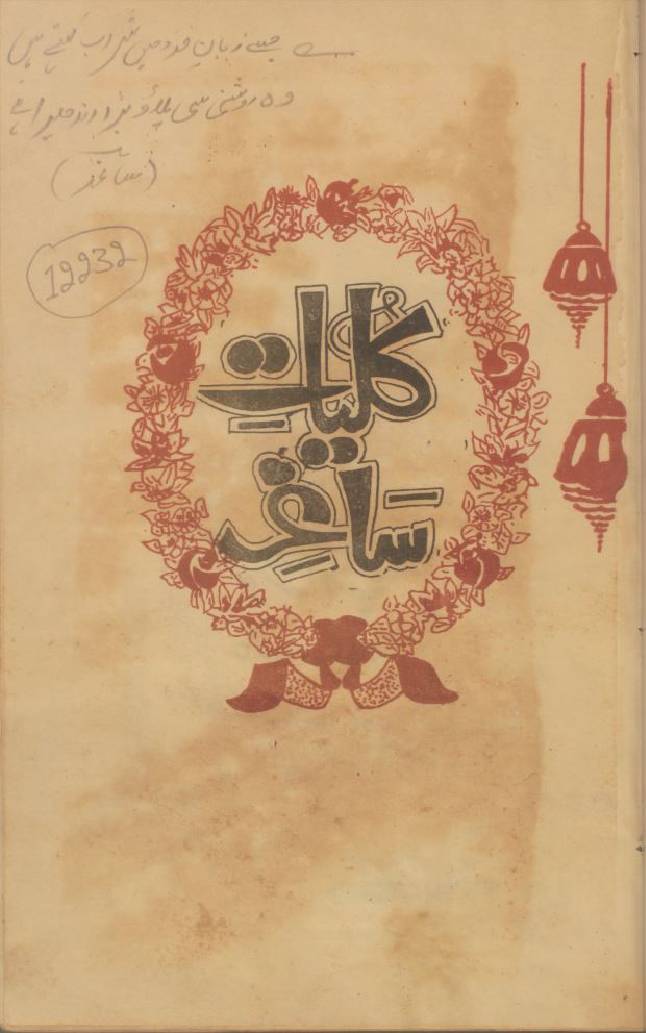 جسے زبانِ خرد میں شراب کہتے ہیں
وہ روشنی سی پلاؤ بڑا اندھیرا ہے
(ساغر)
12232
کلیاتِ
ساغر